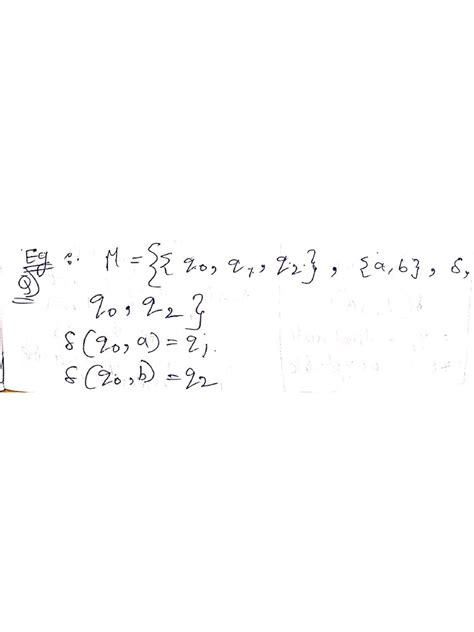 Eg :. M = {{q₀, q₁, q₂}, {a,b}, δ,
Q)
q₀, q₂}
δ(q₀, a) = q₁
δ(q₀, b) = q₂